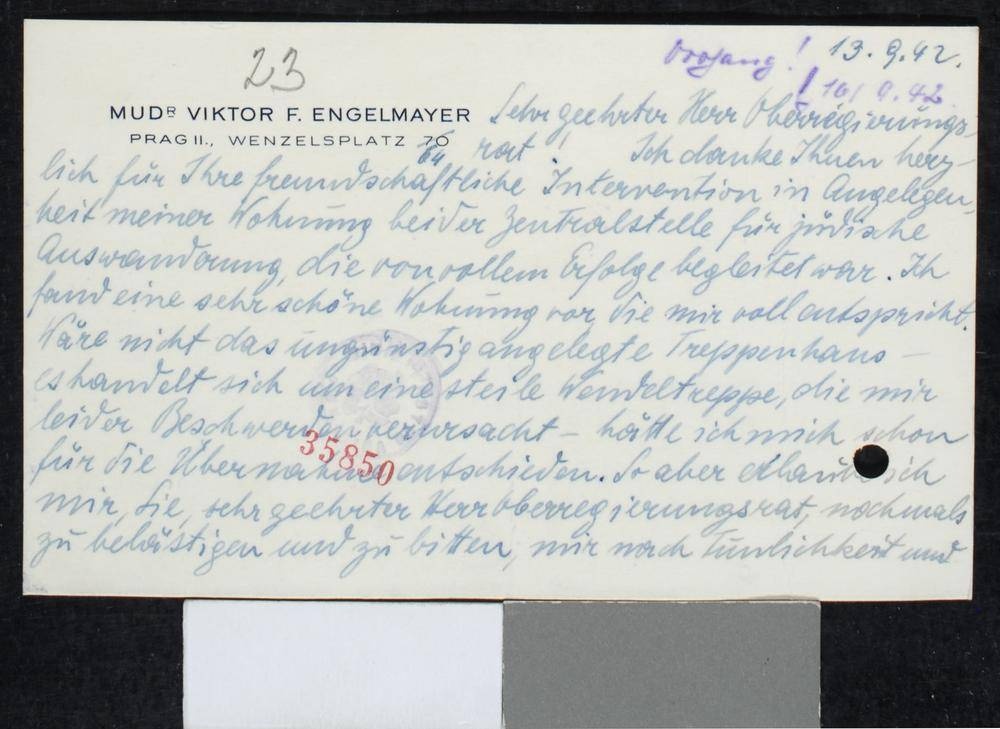 23
Vorgang! 13. 9. 42.
! 16/ 9. 42
MUDR VIKTOR F. ENGELMAYER
PRAG II., WENZELSPLATZ 70
64
Sehr geehrter Herr Oberregierungs-
rat! Ich danke Ihnen herz-
lich für Ihre freundschaftliche Intervention in Angelegen-
heit meiner Wohnung bei der Zentralstelle für jüdische
Auswanderung, die von vollem Erfolge begleitet war. Ich
fand eine sehr schöne Wohnung vor, die mir voll entspricht.
Wäre nicht das ungünstig angelegte Treppenhaus –
es handelt sich um eine steile Wendeltreppe, die mir
leider Beschwerden verursacht – hätte ich mich schon
für die Übernahme entschieden. So aber erlaube ich
35850
mir, Sie, sehr geehrter Herr Oberregierungsrat, nochmals
zu belästigen und zu bitten, mir nach Tunlichkeit und